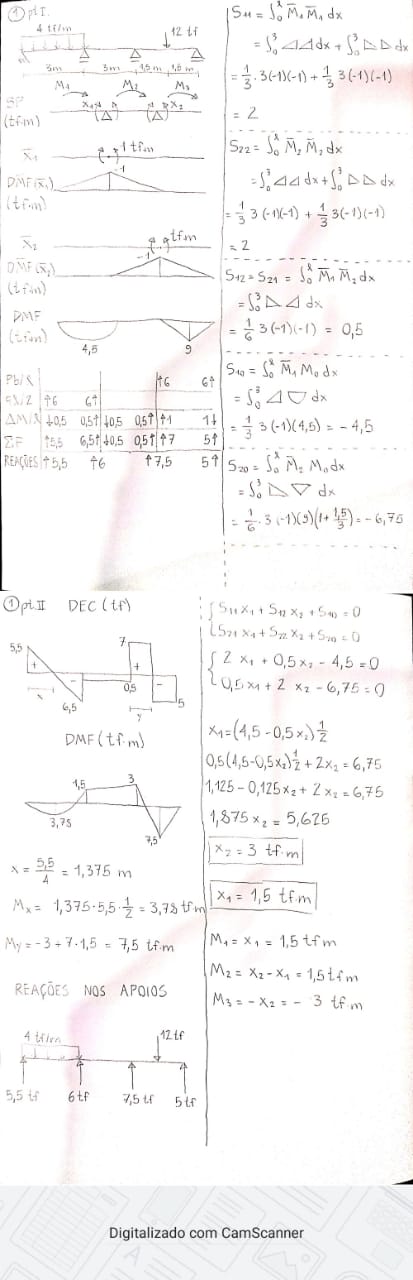 ① pt I.
4 tf/m
12 tf
3m 3m 1,5m 1,5m
M₁ M₂ M₃
SP X₁ X₂
(tf.m)
X̄₁ 1 tf.m
-1
DMF(X̄₁)
(tf.m)
X̄₂ tf.m
-1
DMF(X̄₂)
(tf.m)
DMF
(tf.m)
4,5 9
Pb/l ↑6 6↑
ql/2 ↑6 6↑
ΔM/l ↓0,5 0,5↑ ↓0,5 0,5↑ ↑1 1↓
ΣF ↑5,5 6,5↑ ↓0,5 0,5↑ ↑7 5↑
REAÇÕES ↑5,5 ↑6 ↑7,5 5↑
S₁₁ = ∫₀ˡ M̄₁ M̄₁ dx
= ∫₀³ ◿◿ dx + ∫₀³ ◺◺ dx
= 1/3 . 3(-1)(-1) + 1/3 3(-1)(-1)
= 2
S₂₂ = ∫₀ˡ M̄₂ M̄₂ dx
= ∫₀³ ◿◿ dx + ∫₀³ ◺◺ dx
= 1/3 3(-1)(-1) + 1/3 3(-1)(-1)
= 2
S₁₂ = S₂₁ = ∫₀ˡ M̄₁ M̄₂ dx
= ∫₀³ ◺◿ dx
= 1/6 3(-1)(-1) = 0,5
S₁₀ = ∫₀ˡ M̄₁ M₀ dx
= ∫₀³ dx
= 1/3 3(-1)(4,5) = -4,5
S₂₀ = ∫₀ˡ M̄₂ M₀ dx
= ∫₀³ ◺▽ dx
= 1/6 . 3(-1)(9)(1 + 1,5/3) = -6,75
① pt II DEC (tf)
5,5
7
+ +
x 0,5 -
6,5 y 5
DMF (tf.m)
1,5 3
3,75
7,5
x = 5,5/4 = 1,375 m
Mx = 1,375 . 5,5 . 1/2 = 3,78 tf m
My = -3 + 7 . 1,5 = 7,5 tf.m
REAÇÕES NOS APOIOS
4 tf/m
12 tf
5,5 tf 6 tf 7,5 tf 5 tf
{ S₁₁ X₁ + S₁₂ X₂ + S₁₀ = 0
S₂₁ X₁ + S₂₂ X₂ + S₂₀ = 0
{ 2 X₁ + 0,5 X₂ - 4,5 = 0
0,5 X₁ + 2 X₂ - 6,75 = 0
X₁ = (4,5 - 0,5 X₂) 1/2
0,5(4,5 - 0,5 X₂) 1/2 + 2X₂ = 6,75
1,125 - 0,125 X₂ + 2 X₂ = 6,75
1,875 X₂ = 5,625
X₂ = 3 tf.m
X₁ = 1,5 tf.m
M₁ = X₁ = 1,5 tf m
M₂ = X₂ - X₁ = 1,5 tf m
M₃ = -X₂ = - 3 tf.m
Digitalizado com CamScanner